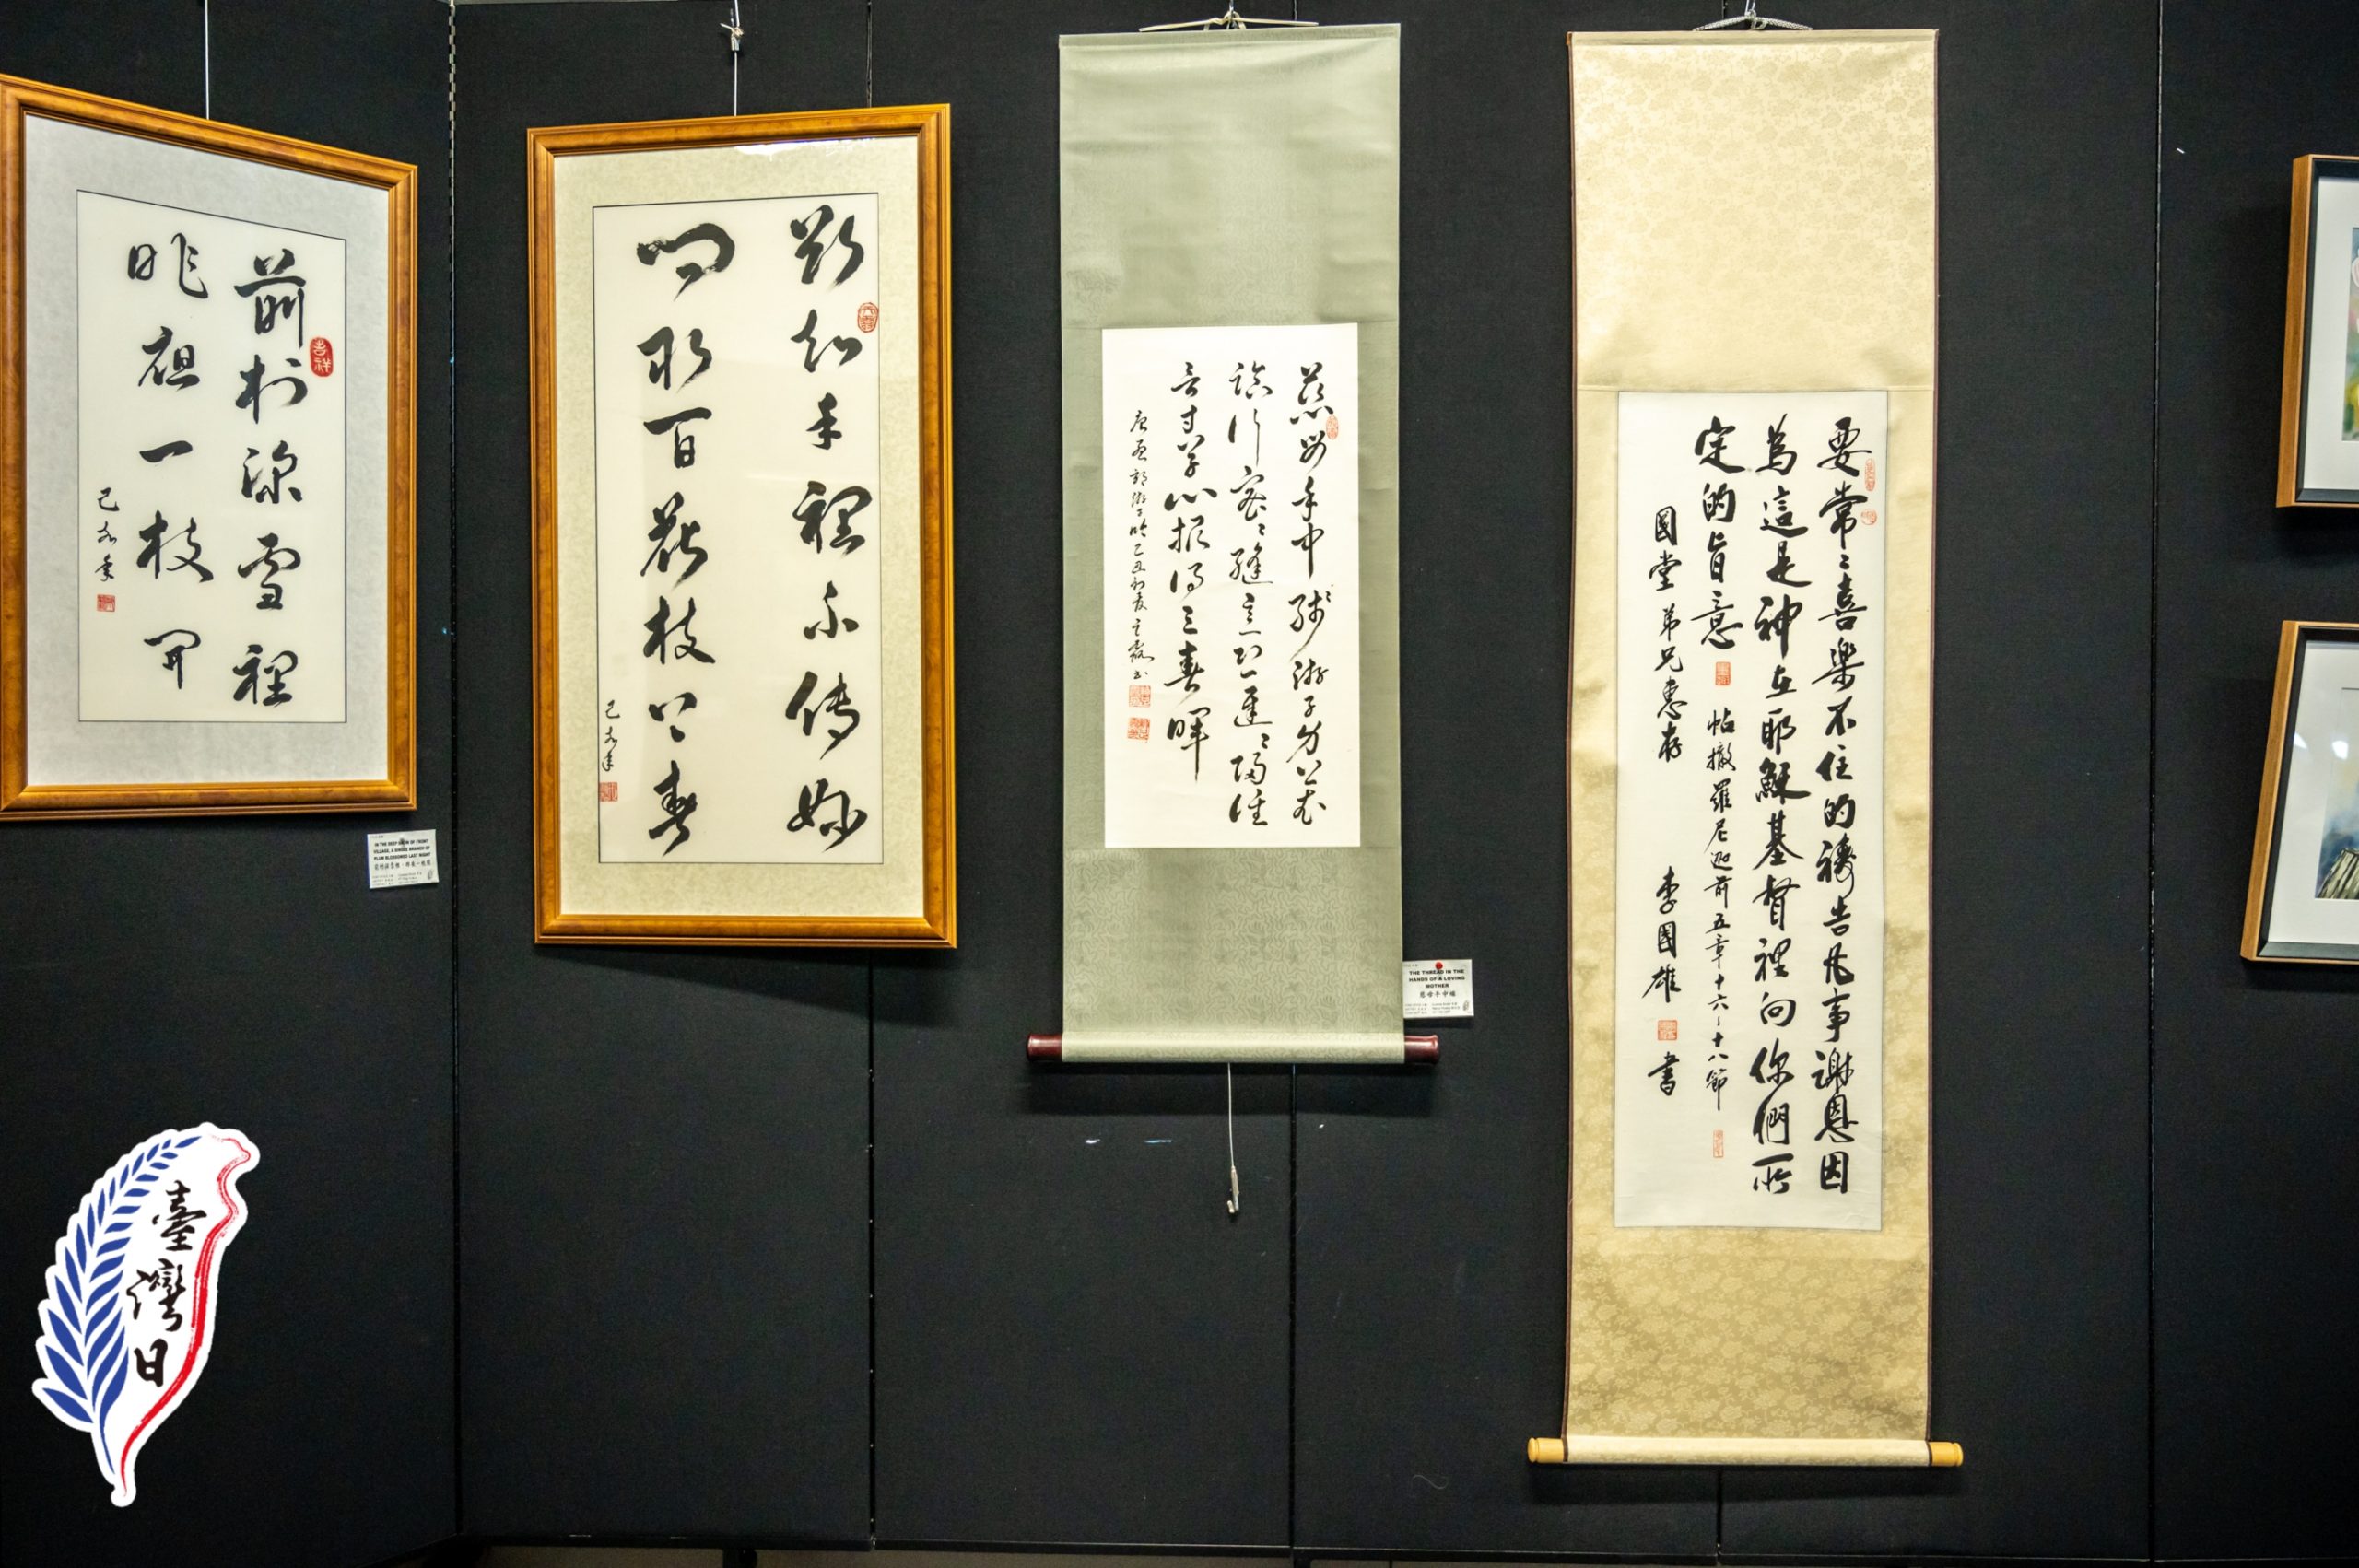 吉祥
前村深雪裡
昨夜一枝開
己亥年
IN THE DEEP SNOW OF FRONT
VILLAGE, A SINGLE BRANCH OF
PLUM BLOSSOMED LAST NIGHT
前村深雪裡，昨夜一枝開
欲知手裡不傳妙
問取百花枝上春
己亥年
慈母手中線游子身上衣
臨行密〻縫意恐遲〻歸誰
言寸草心報得三春暉
唐孟郊遊子吟己丑初夏
書
THE THREAD IN THE
HANDS OF A LOVING
MOTHER
慈母手中線
要常〻喜樂不住的禱告凡事謝恩因
為這是神在耶穌基督裡向你們所
定的旨意
帖撒羅尼迦前五章十六～十八節
國堂弟兄惠存 李國雄 書
臺灣日